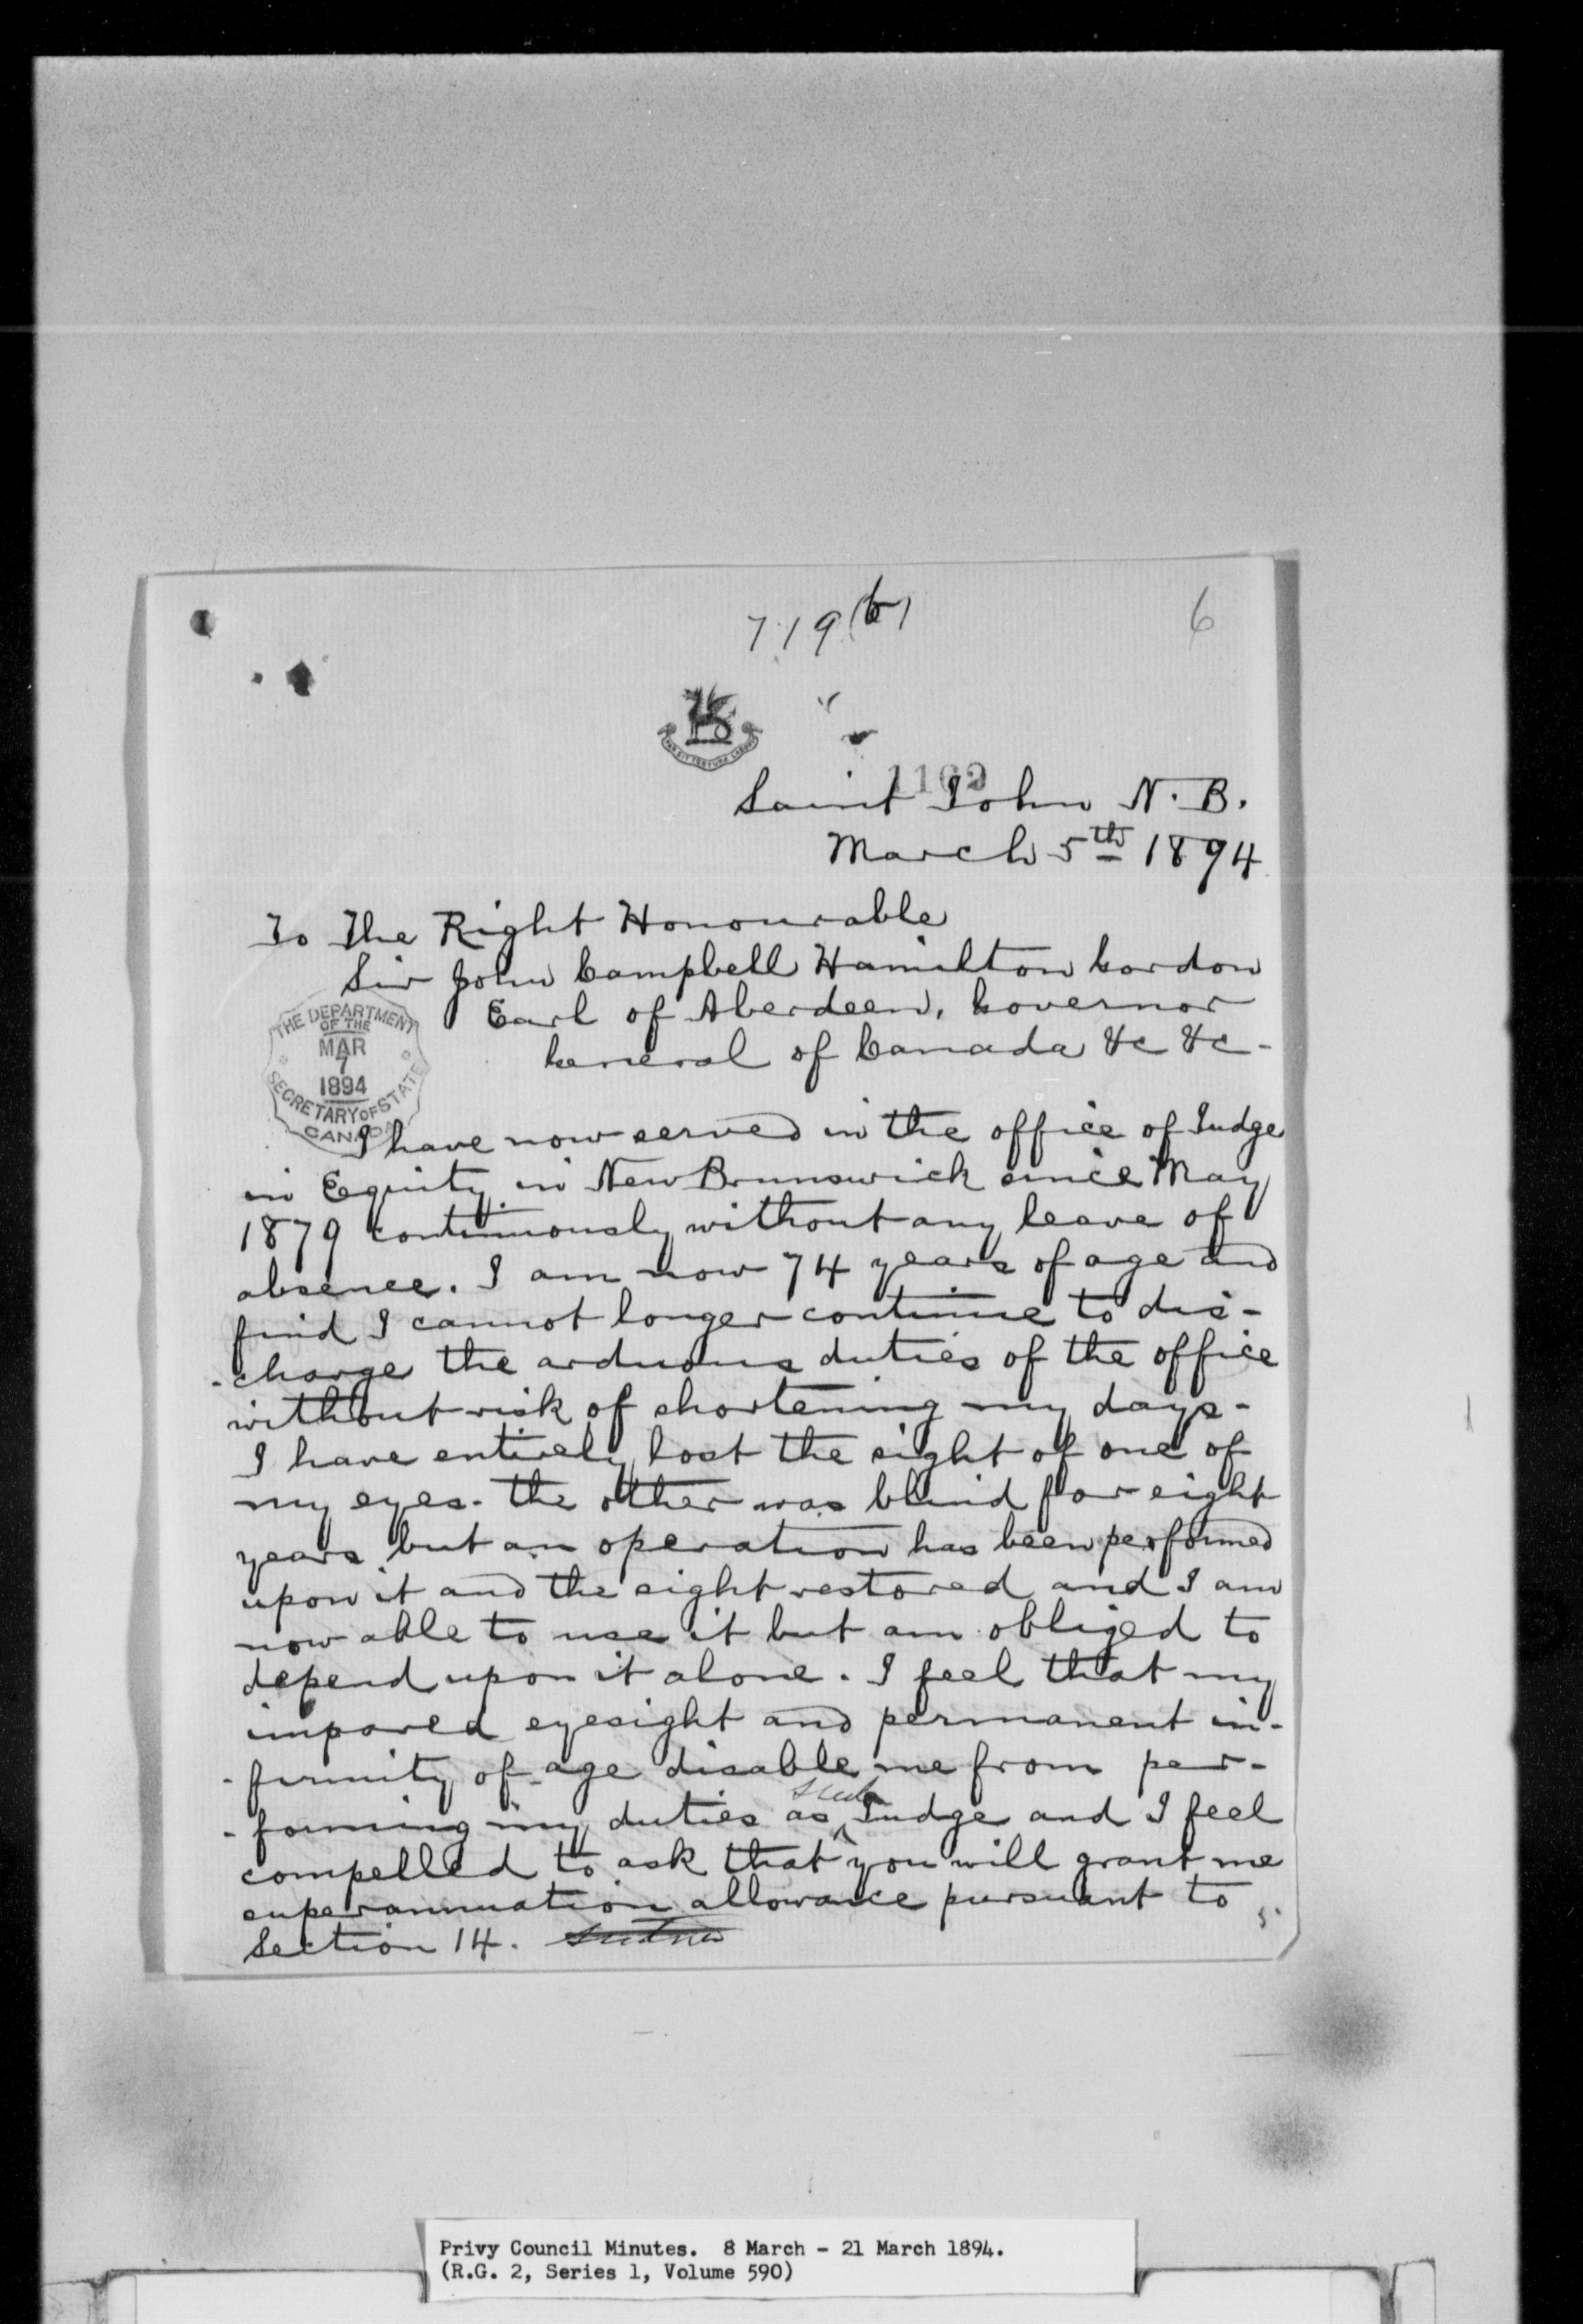 719(b)
6
1162
Saint John N. B.
March 5th 1894
To The Right Honourable
Sir John Campbell Hamilton Gordon
Earl of Aberdeen, Governor
General of Canada &c &c -
THE DEPARTMENT
OF THE
MAR
7
1894
SECRETARY OF STATE
CANADA
I have now served in the office of Judge
in Equity in New Brunswick since May
1879 continuously without any leave of
absence. I am now 74 years of age and
find I cannot longer continue to dis-
-charge the arduous duties of the office
without risk of shortening my days -
I have entirely lost the sight of one of
my eyes - the other was blind for eight
years but an operation has been performed
upon it and the sight restored and I am
now able to use it but am obliged to
depend upon it alone. I feel that my
impared eyesight and permanent in-
-firmity of age disable me from per-
-forming my duties as such Judge and I feel
compelled to ask that you will grant me
superannuation allowance pursuant to
Section 14.
Privy Council Minutes. 8 March - 21 March 1894.
(R.G. 2, Series 1, Volume 590)